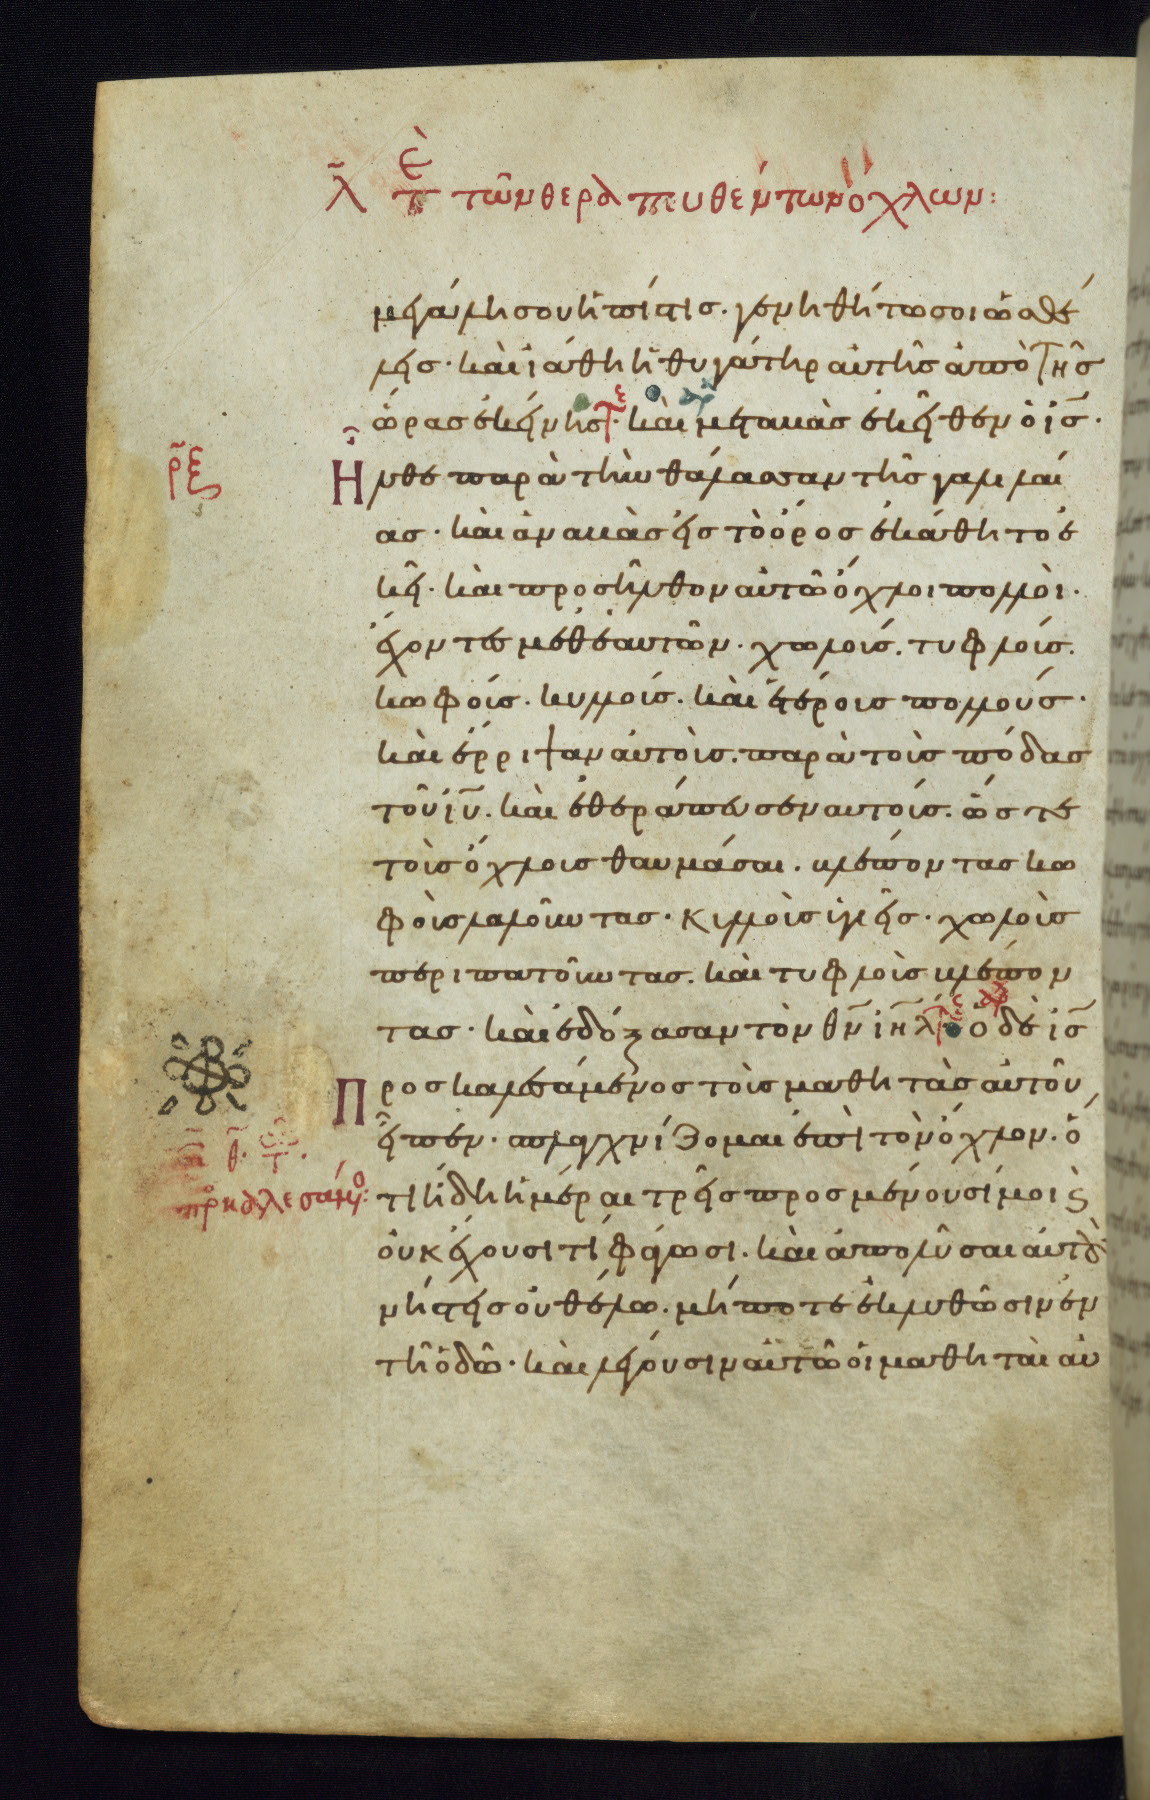 λ̅ ὲ Π τῶν θεραπευθέντων ὄχλων:
μεγάλη σου ἡ πίστις. γενηθήτω σοι ὡς θέ
λεις· καὶ ἰάθη ἡ θυγάτηρ αὐτῆς ἀπὸ τῆς
ὥρας ἐκείνης· καὶ μεταβὰς ἐκεῖθεν ὁ ι̅ς̅·
ρ̅ξ
Ηλθε παρὰ τὴν θάλασσαν τῆς γαλιλαί
ας· καὶ ἀναβὰς εἰς τὸ ὄρος ἐκάθητο ἐ
κεῖ· καὶ προσῆλθον αὐτῶ ὄχλοι πολλοὶ·
ἔχοντες μεθ' ἑαυτῶν· χωλούς. τυφλούς.
κωφούς. κυλλούς. καὶ ἑτέρους πολλούς·
καὶ ἔρριψαν αὐτοὺς. παρὰ τοὺς πόδας
τοῦ ι̅υ̅. καὶ ἐθεράπευσεν αὐτούς. ὥστε
τοὺς ὄχλους θαυμάσαι. βλέποντας κω
φοὺς λαλοῦντας· κυλλοὺς ὑγιεῖς· χωλοὺς
περιπατοῦντας. καὶ τυφλοὺς βλέπον
τας· καὶ ἐδόξασαν τὸν θ̅ν̅ ι̅η̅λ̅ ὁ δὲ ι̅ς̅
Προσκαλεσάμενος τοὺς μαθητὰς αὐτοῦ
εἶπεν· σπλαγχνίζομαι ἐπὶ τὸν ὄχλον. ὅ
τι ἤδη ἡμέραι τρεῖς προσμένουσί μοι ϗ
οὐκ ἔχουσι τί φάγωσι. καὶ ἀπολῦσαι αὐτȣ̀ς
νήστεις οὐ θέλω. μήποτε ἐκλυθῶσιν ἐν
τῆ ὁδῶ· καὶ λέγουσιν αὐτῶ οἱ μαθηταὶ αὐ